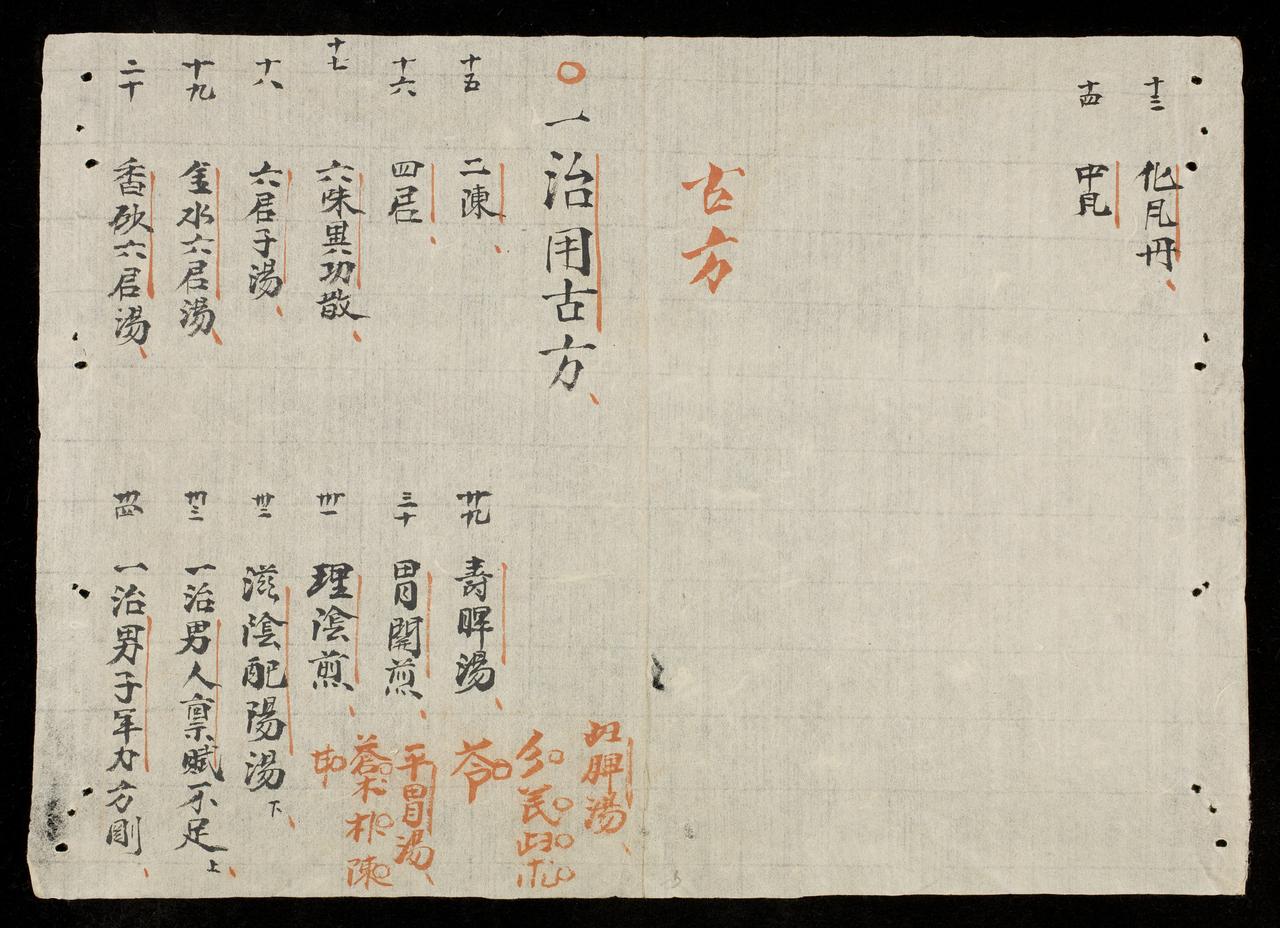 十三 化凡丹
十四 中凡
古方
一治用古方
十五 二陳
十六 四君
十七 六味異功散
十八 六君子湯
十九 金水六君湯
二十 香砍六君湯
廿九 壽脾湯
三十 胃開煎
卅一 理陰煎
卅二 滋陰配陽湯 下
卅三 一治男人稟賦不足 上
卅四 一治男子年力方剛
脾湯
苓
平胃湯
蒼术朴陳
甘